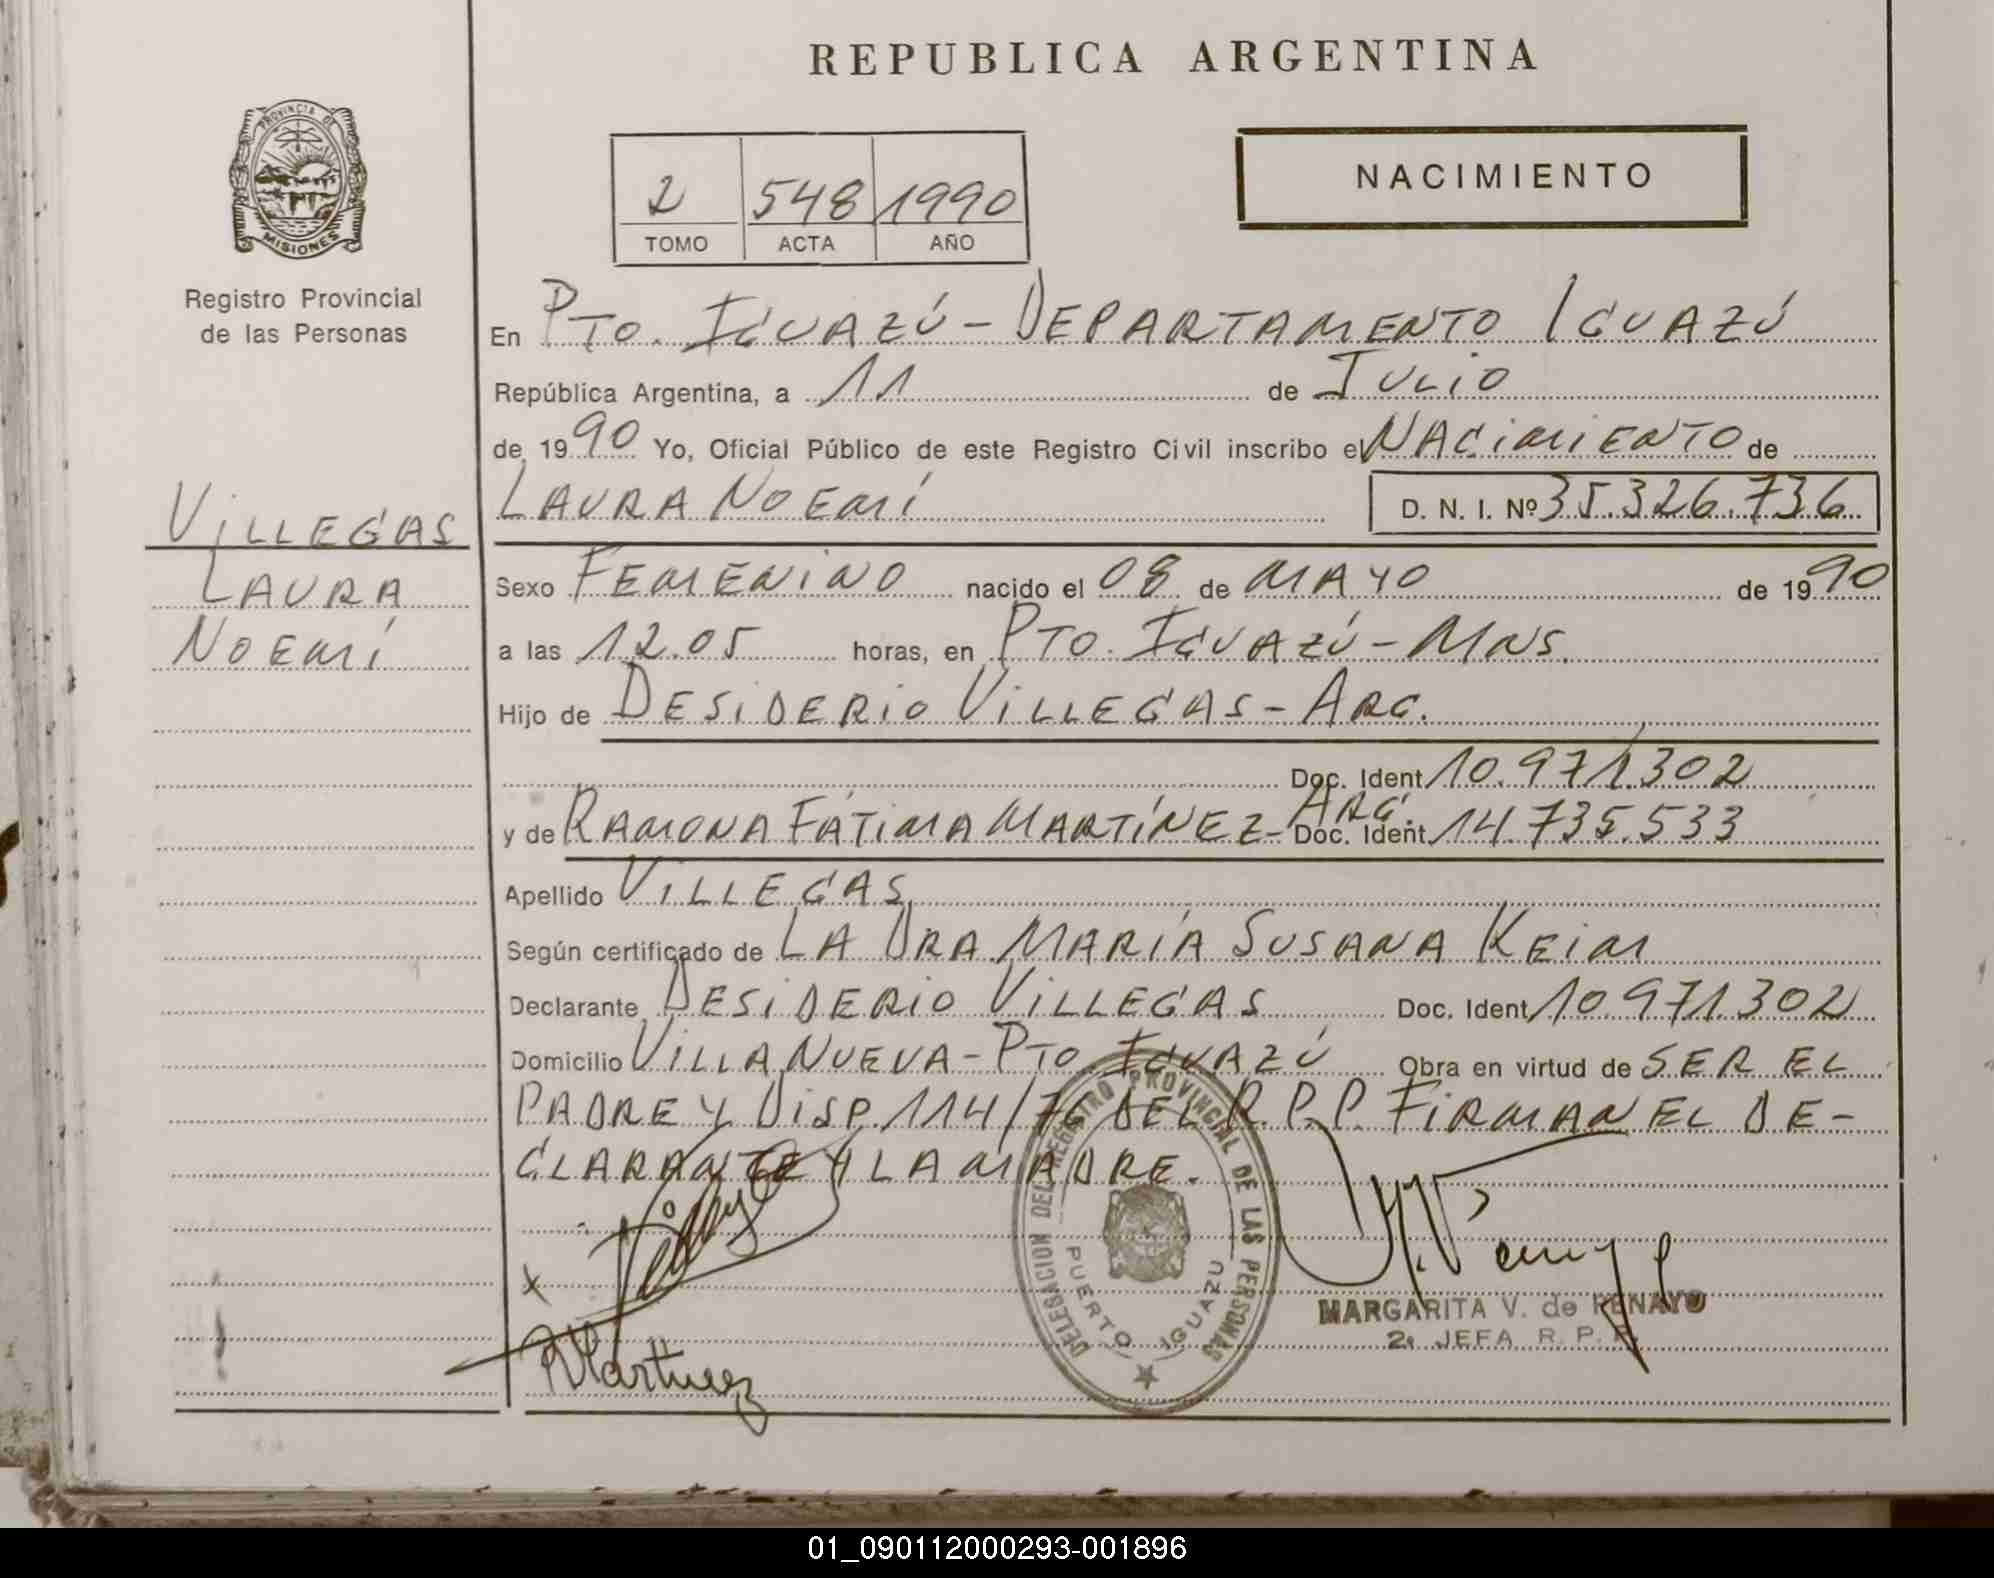 REPUBLICA ARGENTINA
PROVINCIA DE
MISIONES
Registro Provincial
de las Personas
2 548 1990
TOMO ACTA AÑO
NACIMIENTO
En PTO. IGUAZÚ - DEPARTAMENTO IGUAZÚ
República Argentina, a 11 de JULIO
de 1990 Yo, Oficial Público de este Registro Civil inscribo el NACIMIENTO de
LAURA NOEMÍ D. N. I. Nº 35.326.736
VILLEGAS
LAURA
NOEMÍ
Sexo FEMENINO nacido el 08 de MAYO de 1990
a las 12.05 horas, en PTO. IGUAZÚ - MNS.
Hijo de DESIDERIO VILLEGAS - ARG.
Doc. Ident 10.971.302
y de RAMONA FÁTIMA MARTÍNEZ - ARG. Doc. Ident 14.735.533
Apellido VILLEGAS
Según certificado de LA DRA MARÍA SUSANA KEIM
Declarante DESIDERIO VILLEGAS Doc. Ident 10.971.302
Domicilio VILLA NUEVA - PTO IGUAZÚ Obra en virtud de SER EL
PADRE Y DISP. 114/76 DEL R.P.P. FIRMAN EL DE-
CLARANTE Y LA MADRE.
DELEGACION DEL REGISTRO PROVINCIAL DE LAS PERSONAS
PUERTO IGUAZU
x
RMartinez
MARGARITA V. de PENAYO
2a JEFA R. P. P.
01_090112000293-001896